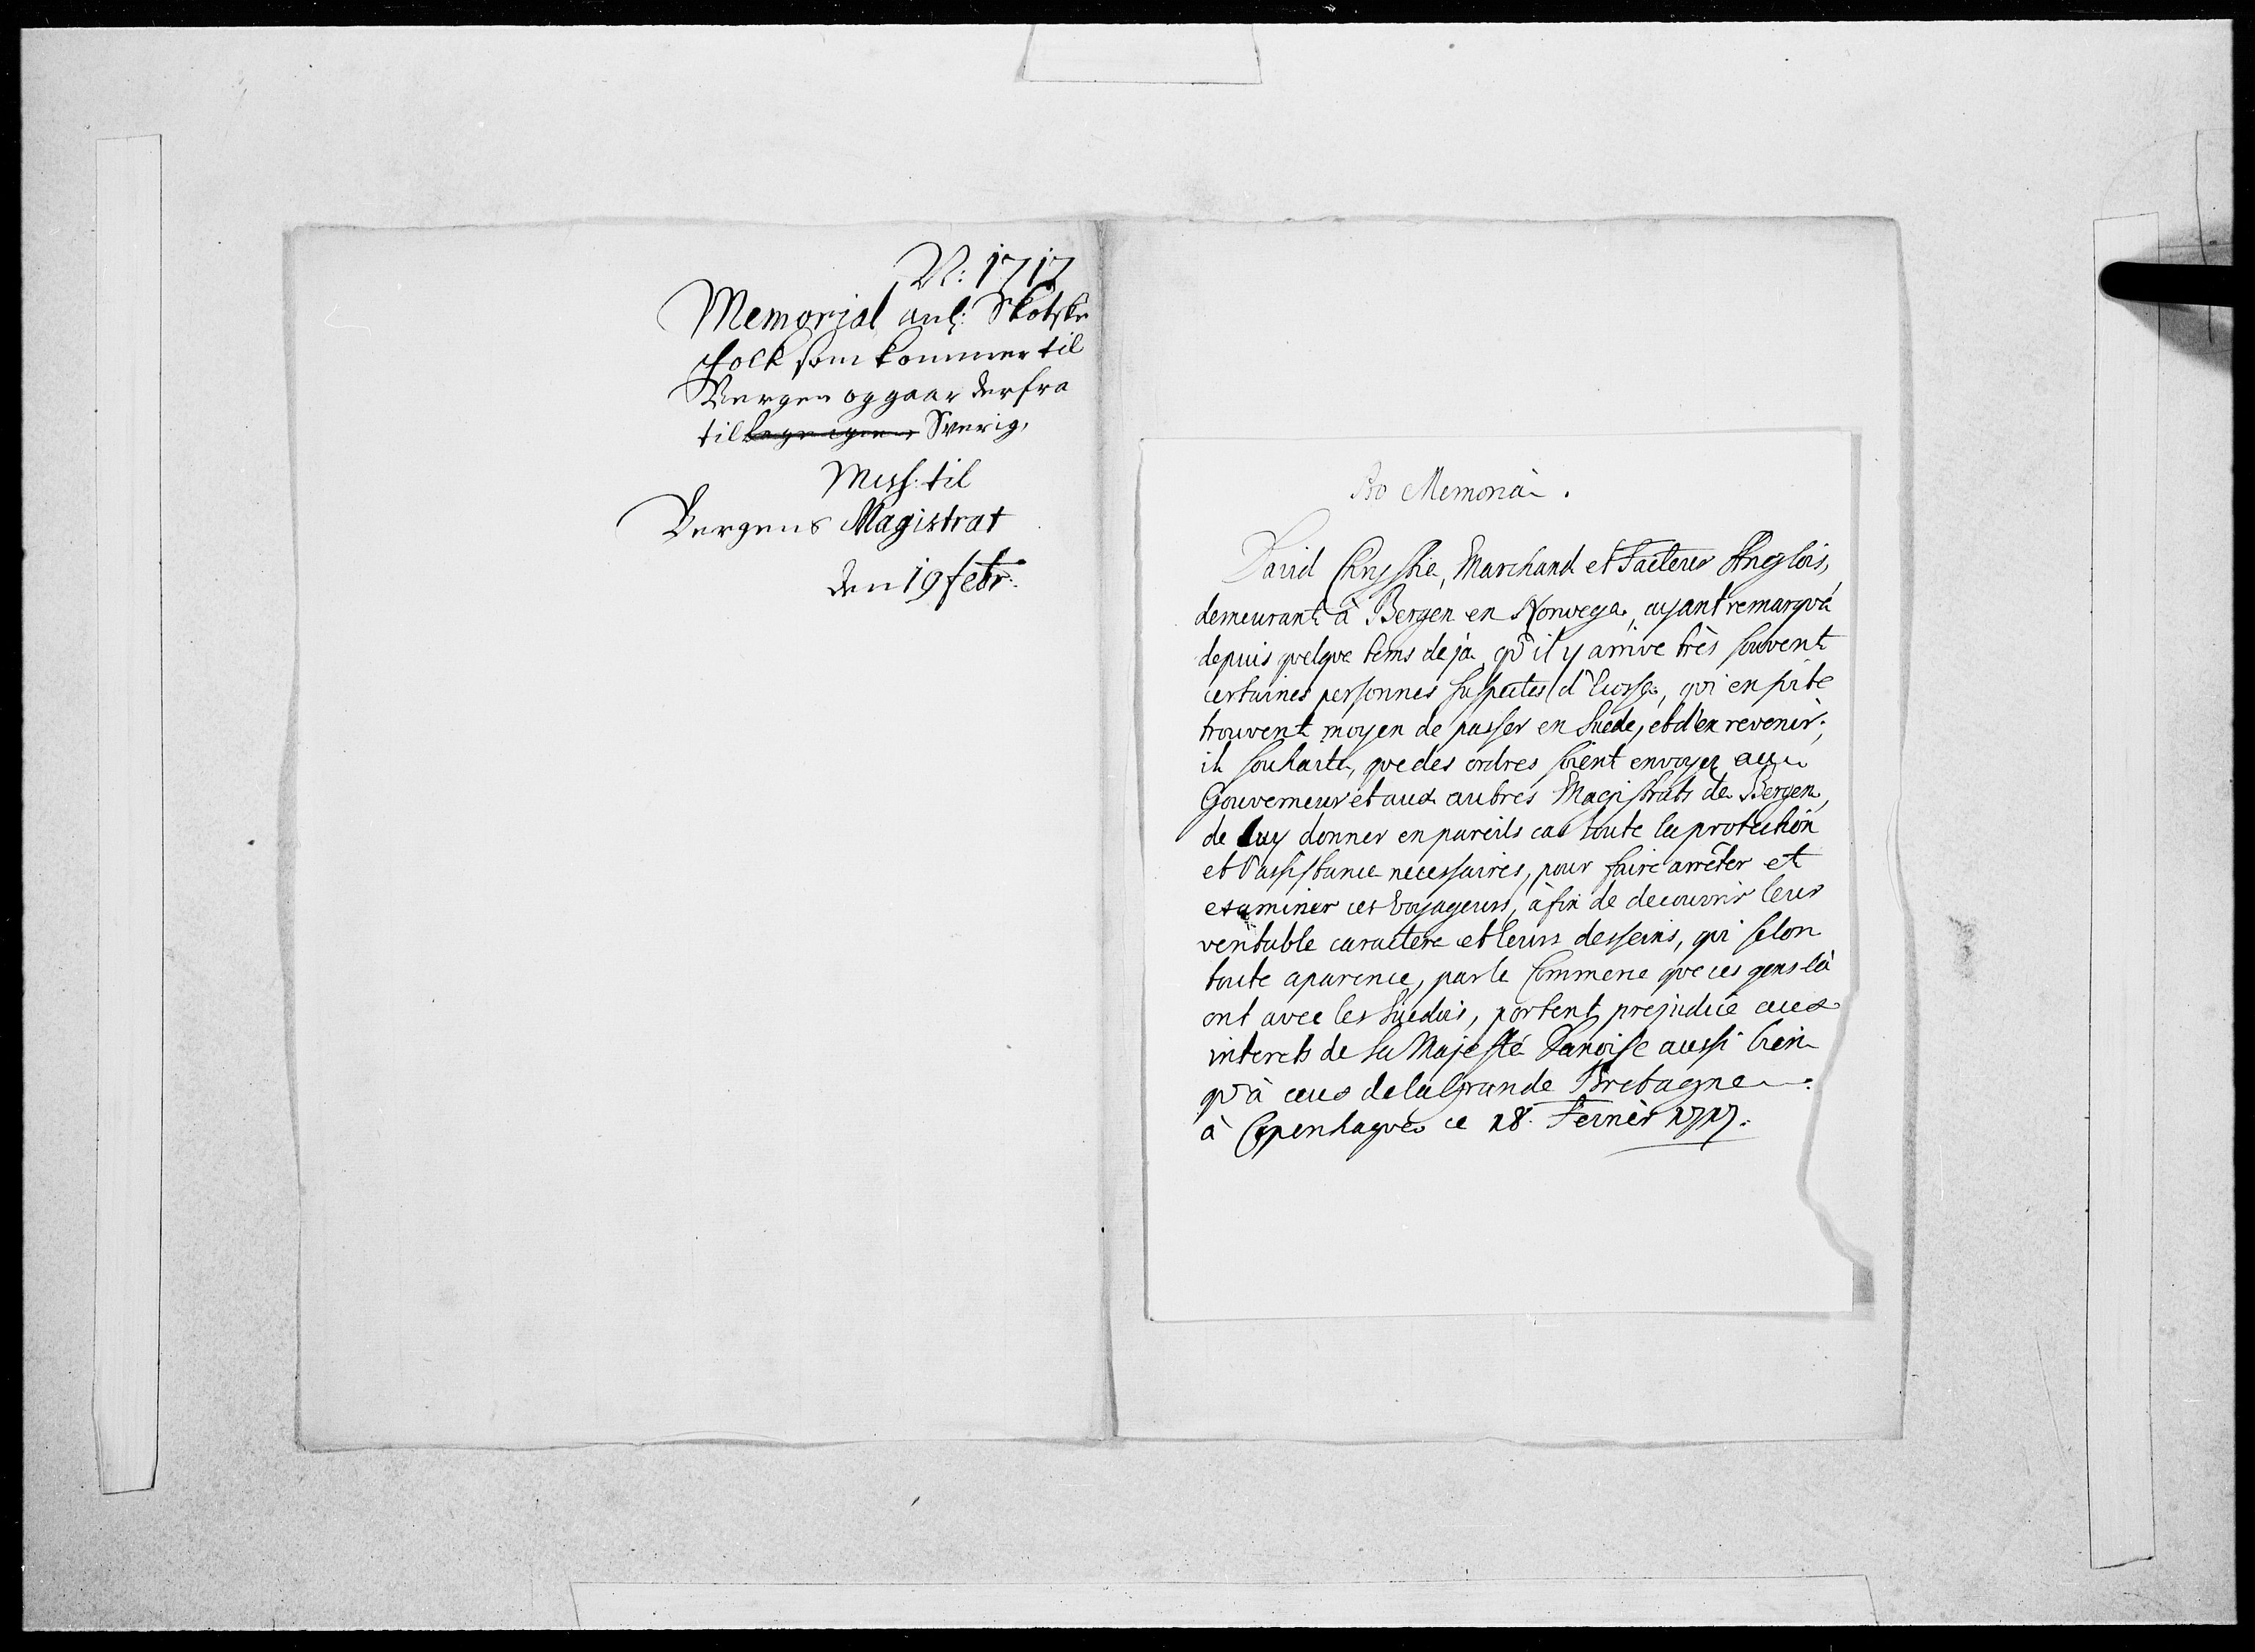 N: 1717
Memorial anl: Skotske
folck som kommer til
Bergen og gaar derfra
til Sverig,
Miss: til
Bergens Magistrat
den 19 febr:
Pro Memoria.
David Chrystie, Marchand et Facteur Anglois,
demeurant à Bergen en Norwege, ayant remarqué
depuis quelque tems deja, qu'il y arrive très souvent
certaines personnes suspectes d'Ecosse, qui ensuite
trouvent moyen de passer en Suede, et d'en revenir;
il souhaite, que des ordres soient envoyez au
Gouverneur et aux autres Magistrats de Bergen,
de luy donner en pareils cas toute la protection
et l'assistance necessaires, pour faire arrêter et
examiner ces voyageurs, à fin de decouvrir leur
veritable caractere et leurs desseins, qui selon
toute aparence, par le Commerce que ces gens là
ont avec les Suedois, portent prejudice aux
interets de Sa Majesté Danoise aussi bien
qu'à ceux de la Grande Bretagne.
à Copenhague ce 18. Fevrièr 1717.